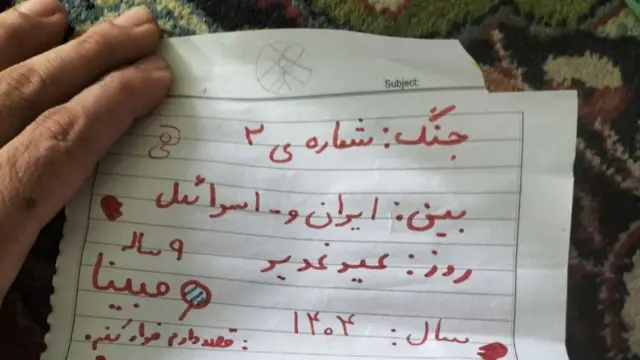 Subject:
جنگ: شماره ی ۲
بین: ایران و - اسرائیل
روز: عید غدیر
۹ ساله
مبینا
سال: ۱۴۰۴
قصد دارم فرار کنم.: